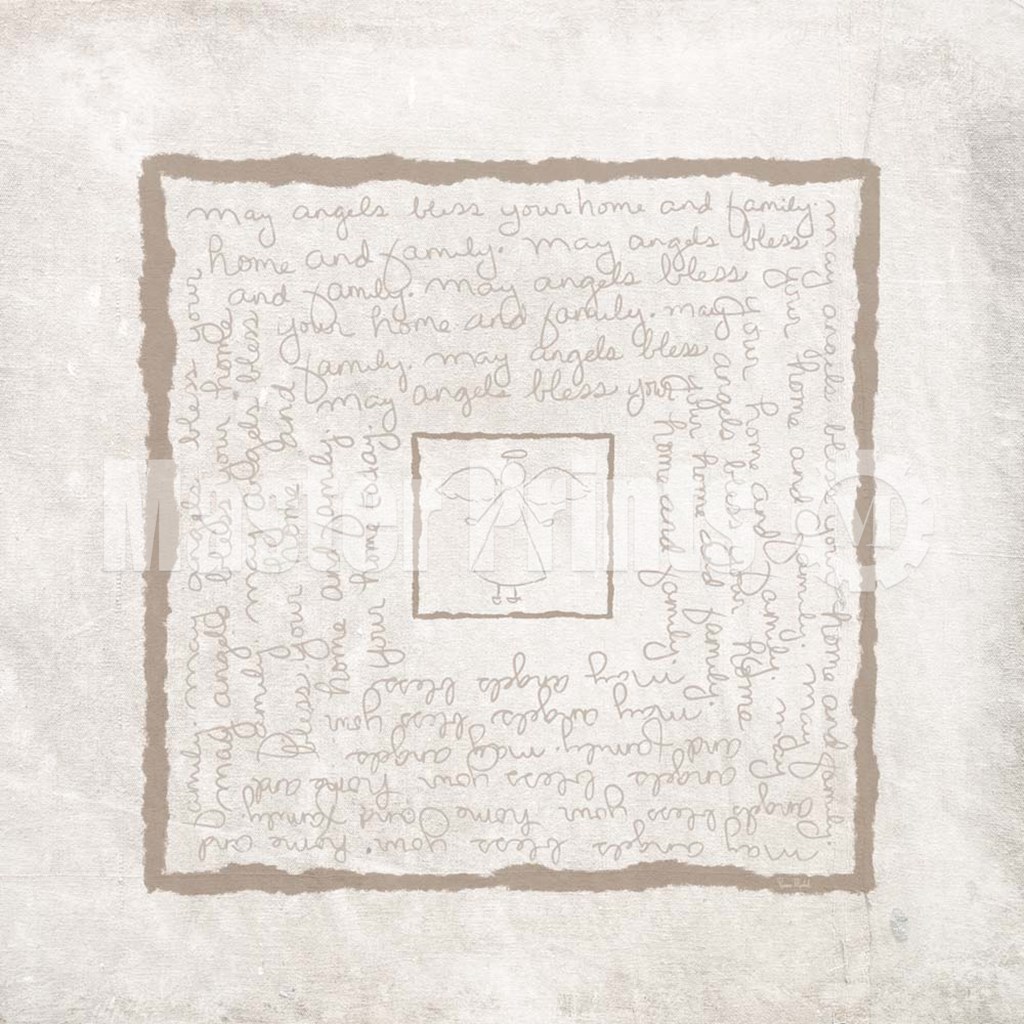 may angels bless your home and family.
home and family. may angels bless
and family. may angels bless
your home and family. may
family. may angels bless
may angels bless your
may angels bless your home and family.
your home and family. may angels
your home and family. may
angels bless your home
your home and family.
home and family.
may angels bless your home and
angels bless your home and family.
angels bless your home and
and family. may angels
may angels bless your
may angels bless
family. may angels bless your
may angels bless your home
family. may angels bless
bless your home and
home and family.
your home today.
Master Prints